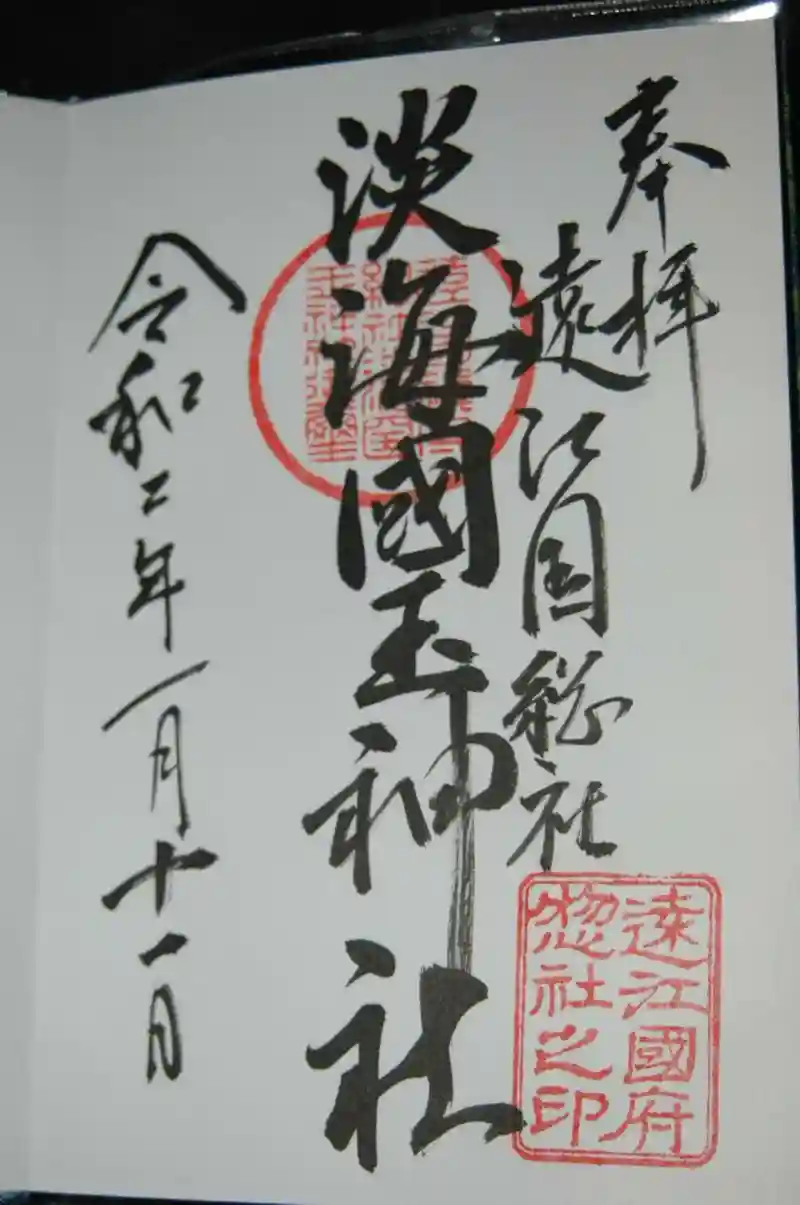 奉拝
遠江国総社
淡海國玉神社
令和二年一月十一日
遠江國府
惣社之印